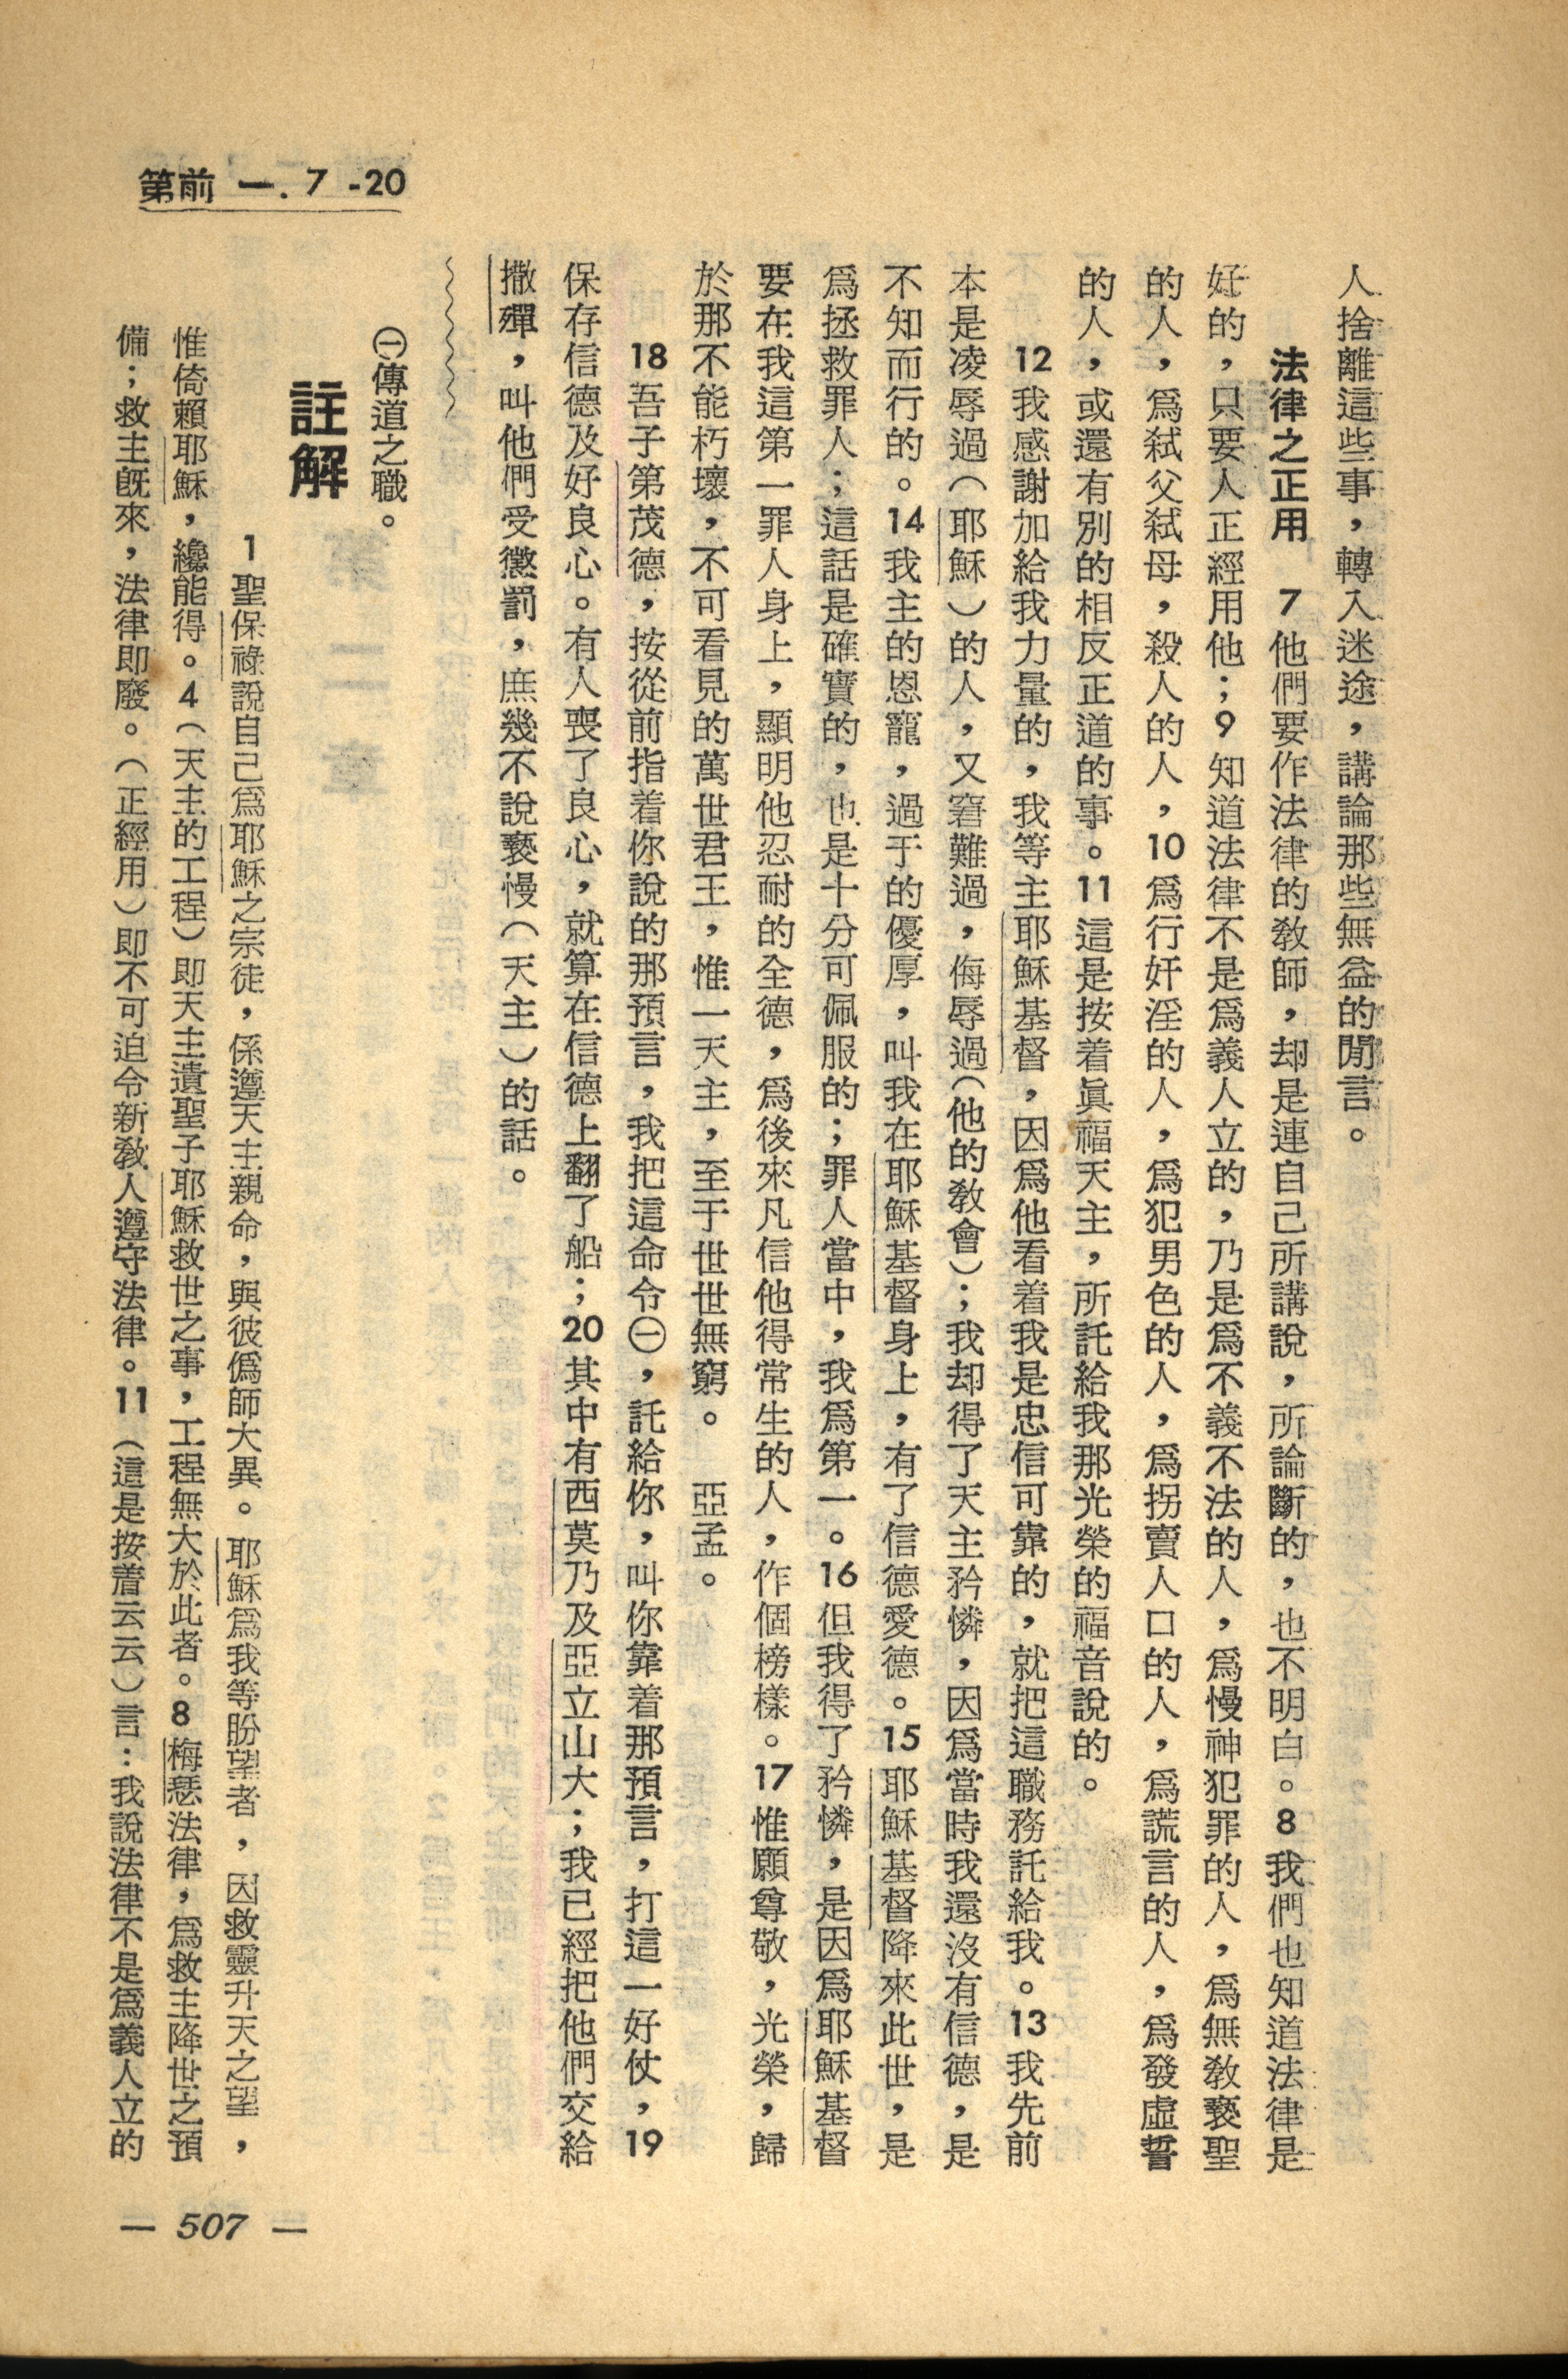 第前 一. 7 -20
人捨離這些事，轉入迷途，講論那些無益的閒言。
法律之正用　7他們要作法律的敎師，却是連自己所講說，所論斷的，也不明白。8我們也知道法律是
好的，只要人正經用他；9知道法律不是爲義人立的，乃是爲不義不法的人，爲慢神犯罪的人，爲無敎褻聖
的人，爲弒父弒母，殺人的人，10爲行奸淫的人，爲犯男色的人，爲拐賣人口的人，爲謊言的人，爲發虛誓
的人，或還有別的相反正道的事。11這是按着眞福天主，所託給我那光榮的福音說的。
12我感謝加給我力量的，我等主耶穌基督，因爲他看着我是忠信可靠的，就把這職務託給我。13我先前
本是凌辱過（耶穌）的人，又窘難過，侮辱過（他的敎會）；我却得了天主矜憐，因爲當時我還沒有信德，是
不知而行的。14我主的恩寵，過于的優厚，叫我在耶穌基督身上，有了信德愛德。15耶穌基督降來此世，是
爲拯救罪人；這話是確實的，也是十分可佩服的；罪人當中，我爲第一。16但我得了矜憐，是因爲耶穌基督
要在我這第一罪人身上，顯明他忍耐的全德，爲後來凡信他得常生的人，作個榜樣。17惟願尊敬，光榮，歸
於那不能朽壞，不可看見的萬世君王，惟一天主，至于世世無窮。　亞孟。
18吾子第茂德，按從前指着你說的那預言，我把這命令㊀，託給你，叫你靠着那預言，打這一好仗，19
保存信德及好良心。有人喪了良心，就算在信德上翻了船；20其中有西莫乃及亞立山大；我已經把他們交給
撒殫，叫他們受懲罰，庶幾不說褻慢（天主）的話。
㊀傳道之職。
註解
1聖保祿說自己爲耶穌之宗徒，係遵天主親命，與彼僞師大異。耶穌爲我等盼望者，因救靈升天之望，
惟倚賴耶穌，纔能得。4（天主的工程）即天主遺聖子耶穌救世之事，工程無大於此者。8梅瑟法律，爲救主降世之預
備；救主旣來，法律即廢。（正經用）即不可迫令新敎人遵守法律。11（這是按着云云）言：我說法律不是爲義人立的
— 507 —